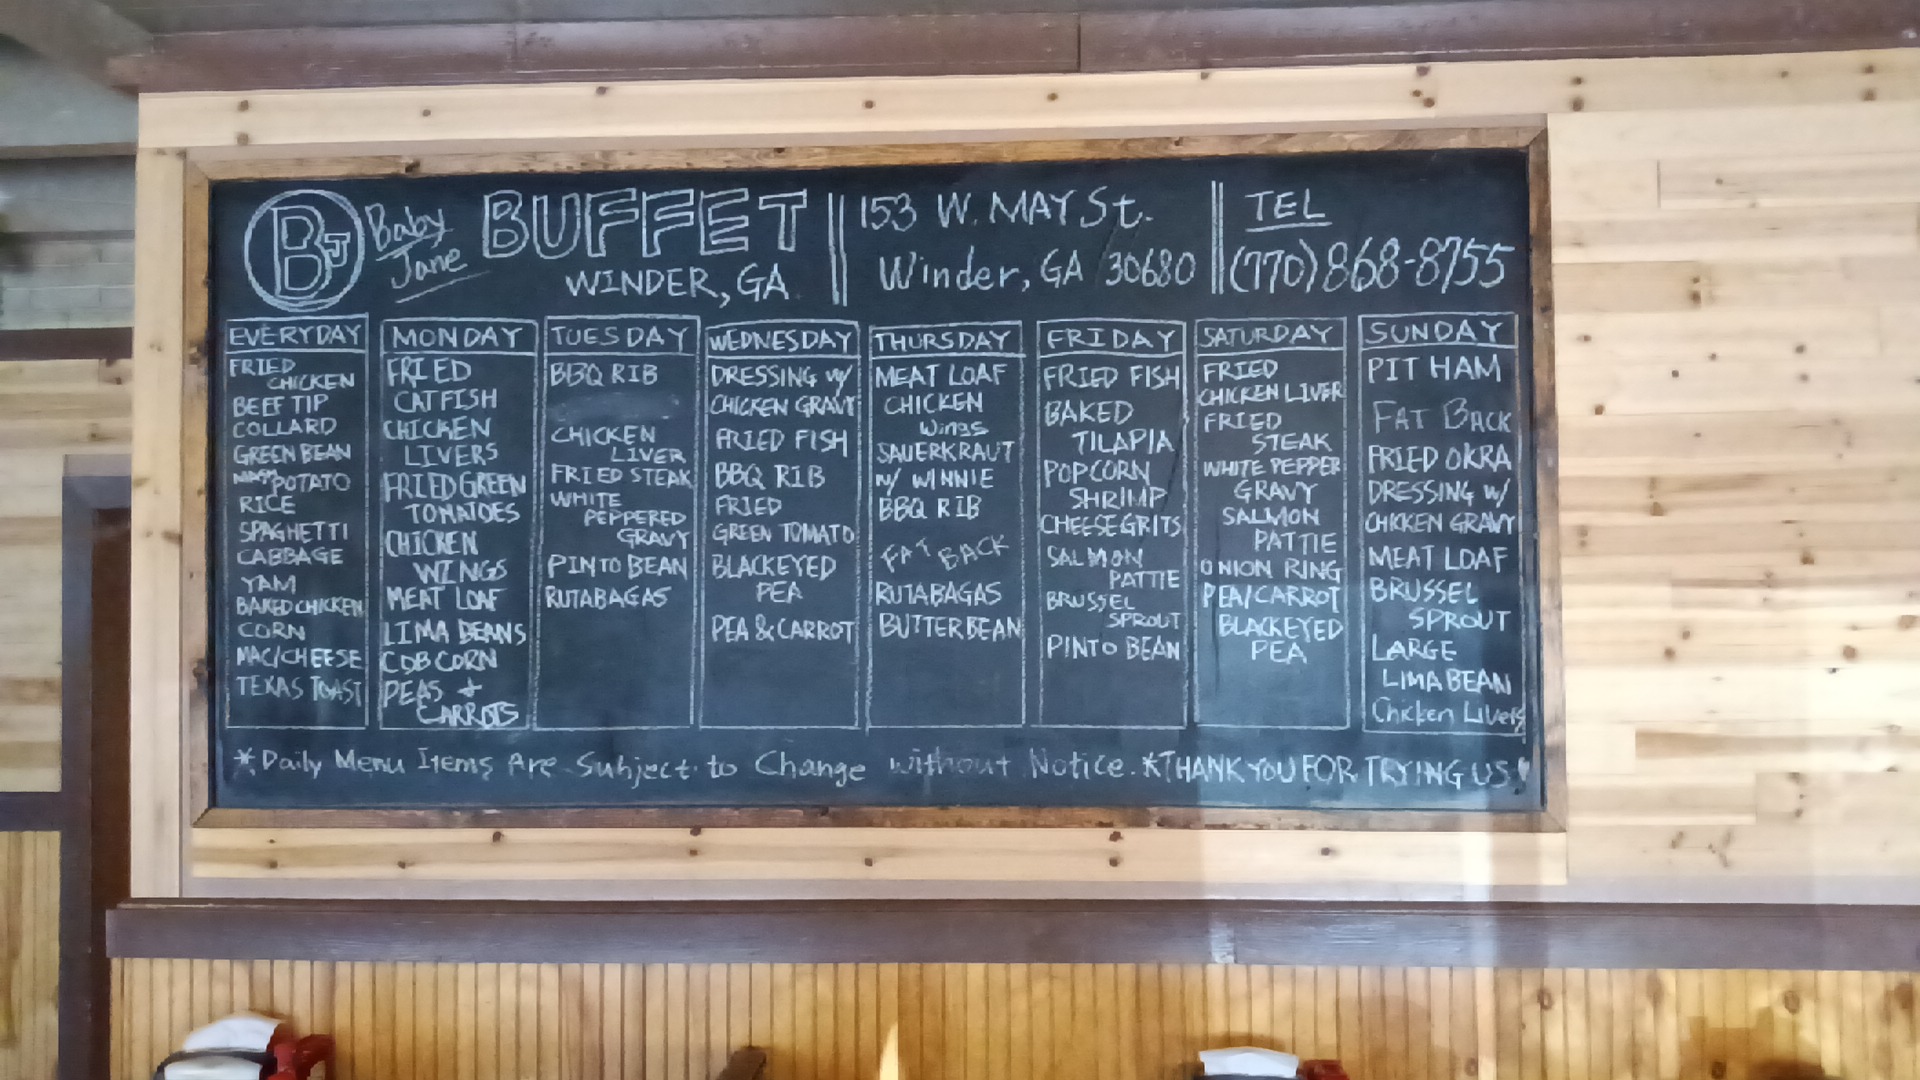 BJ
Baby
Jane
BUFFET
WINDER, GA
153 W. MAY St.
Winder, GA 30680
TEL
(770)868-8755
EVERYDAY
FRIED
CHICKEN
BEEF TIP
COLLARD
GREEN BEAN
POTATO
RICE
SPAGHETTI
CABBAGE
YAM
BAKED CHICKEN
CORN
MAC/CHEESE
TEXAS TOAST
MONDAY
FRIED
CATFISH
CHICKEN
LIVERS
FRIED GREEN
TOMATOES
CHICKEN
WINGS
MEAT LOAF
LIMA BEANS
COB CORN
PEAS +
CARROTS
TUESDAY
BBQ RIB
CHICKEN
LIVER
FRIED STEAK
WHITE
PEPPERED
GRAVY
PINTO BEAN
RUTABAGAS
WEDNESDAY
DRESSING w/
CHICKEN GRAVY
FRIED FISH
BBQ RIB
FRIED
GREEN TOMATO
BLACKEYED
PEA
PEA & CARROT
THURSDAY
MEAT LOAF
CHICKEN
Wings
SAUERKRAUT
w/ WINNIE
BBQ RIB
FAT BACK
RUTABAGAS
BUTTER BEAN
FRIDAY
FRIED FISH
BAKED
TILAPIA
POPCORN
SHRIMP
CHEESE GRITS
SALMON
PATTIE
BRUSSEL
SPROUT
PINTO BEAN
SATURDAY
FRIED
CHICKEN LIVER
FRIED
STEAK
WHITE PEPPER
GRAVY
SALMON
PATTIE
ONION RING
PEA/CARROT
BLACKEYED
PEA
SUNDAY
PIT HAM
FAT BACK
FRIED OKRA
DRESSING w/
CHICKEN GRAVY
MEAT LOAF
BRUSSEL
SPROUT
LARGE
LIMA BEAN
Chicken Livers
*Daily Menu Items Are Subject to Change without Notice. *THANK YOU FOR TRYING US!